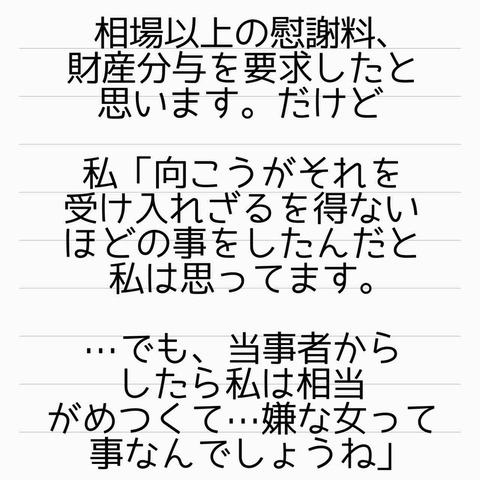 相場以上の慰謝料、
財産分与を要求したと
思います。だけど
私「向こうがそれを
受け入れざるを得ない
ほどの事をしたんだと
私は思ってます。
…でも、当事者から
したら私は相当
がめつくて…嫌な女って
事なんでしょうね」